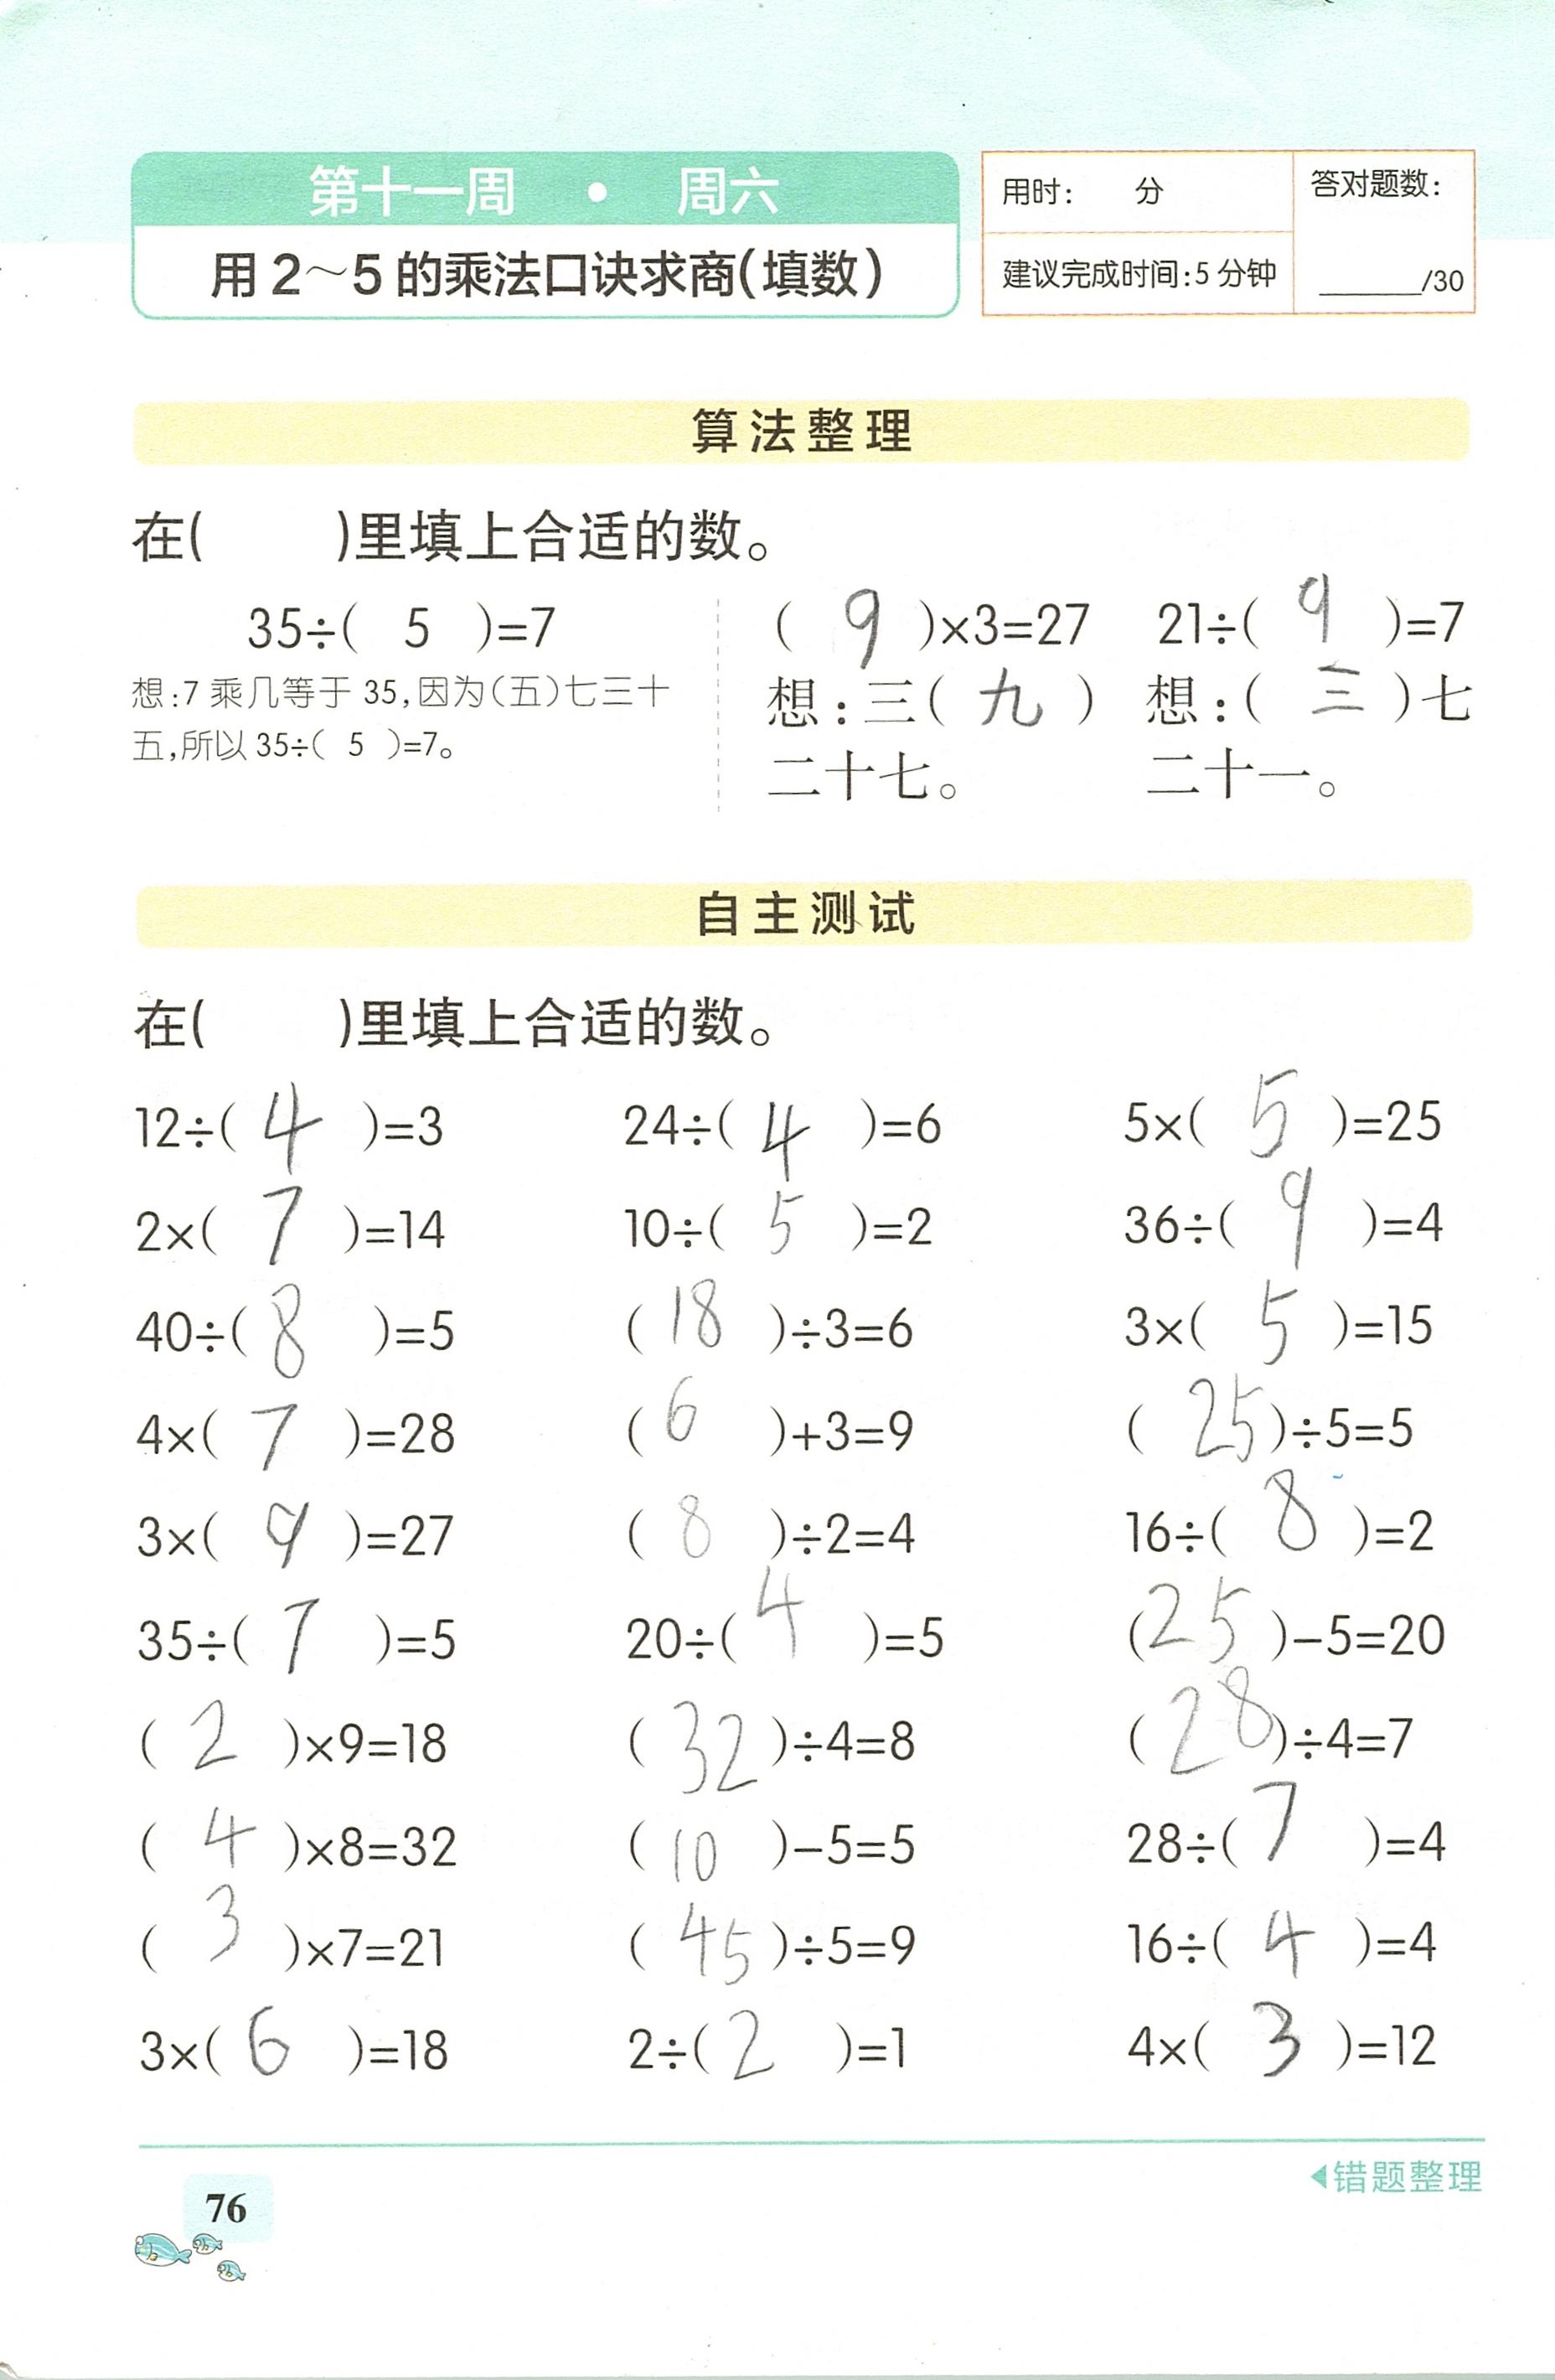 第十一周 · 周六
用2~5的乘法口诀求商(填数)
用时: 分
建议完成时间:5分钟
答对题数:
______/30
算法整理
在( )里填上合适的数。
35÷( 5 )=7
想:7乘几等于35,因为(五)七三十
五,所以35÷( 5 )=7。
( 9 )×3=27
想:三( 九 )
二十七。
21÷( 9 )=7
想:( 三 )七
二十一。
自主测试
在( )里填上合适的数。
12÷( 4 )=3 24÷( 4 )=6 5×( 5 )=25
2×( 7 )=14 10÷( 5 )=2 36÷( 9 )=4
40÷( 8 )=5 ( 18 )÷3=6 3×( 5 )=15
4×( 7 )=28 ( 6 )+3=9 ( 25 )÷5=5
3×( 9 )=27 ( 8 )÷2=4 16÷( 8 )=2
35÷( 7 )=5 20÷( 4 )=5 ( 25 )-5=20
( 2 )×9=18 ( 32 )÷4=8 ( 28 )÷4=7
( 4 )×8=32 ( 10 )-5=5 28÷( 7 )=4
( 3 )×7=21 ( 45 )÷5=9 16÷( 4 )=4
3×( 6 )=18 2÷( 2 )=1 4×( 3 )=12
◀错题整理
76